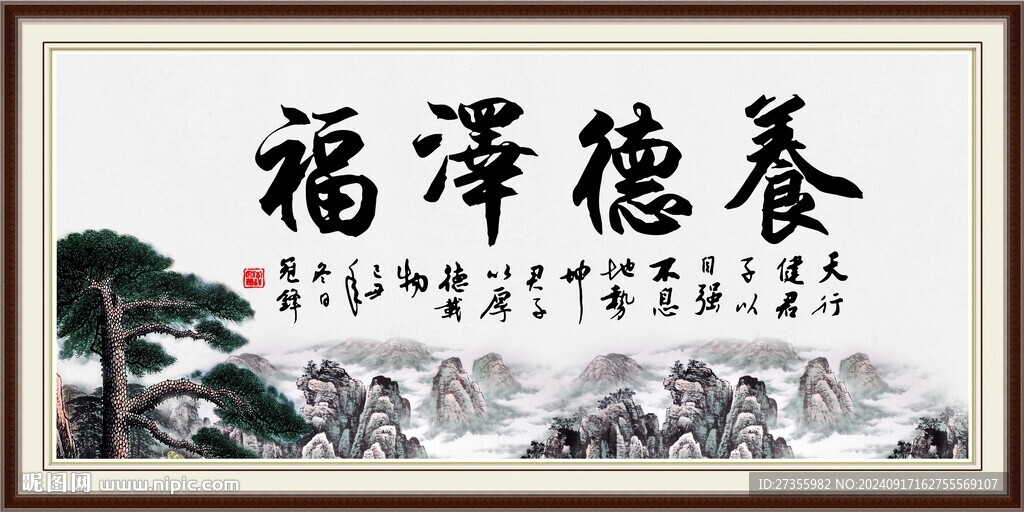 養德澤福
天行
健君
子以
自强
不息
地勢
坤
君子
以厚
德載
物
年
冬日
昵图网 www.nipic.com
ID:27355982 NO:20240917162755569107